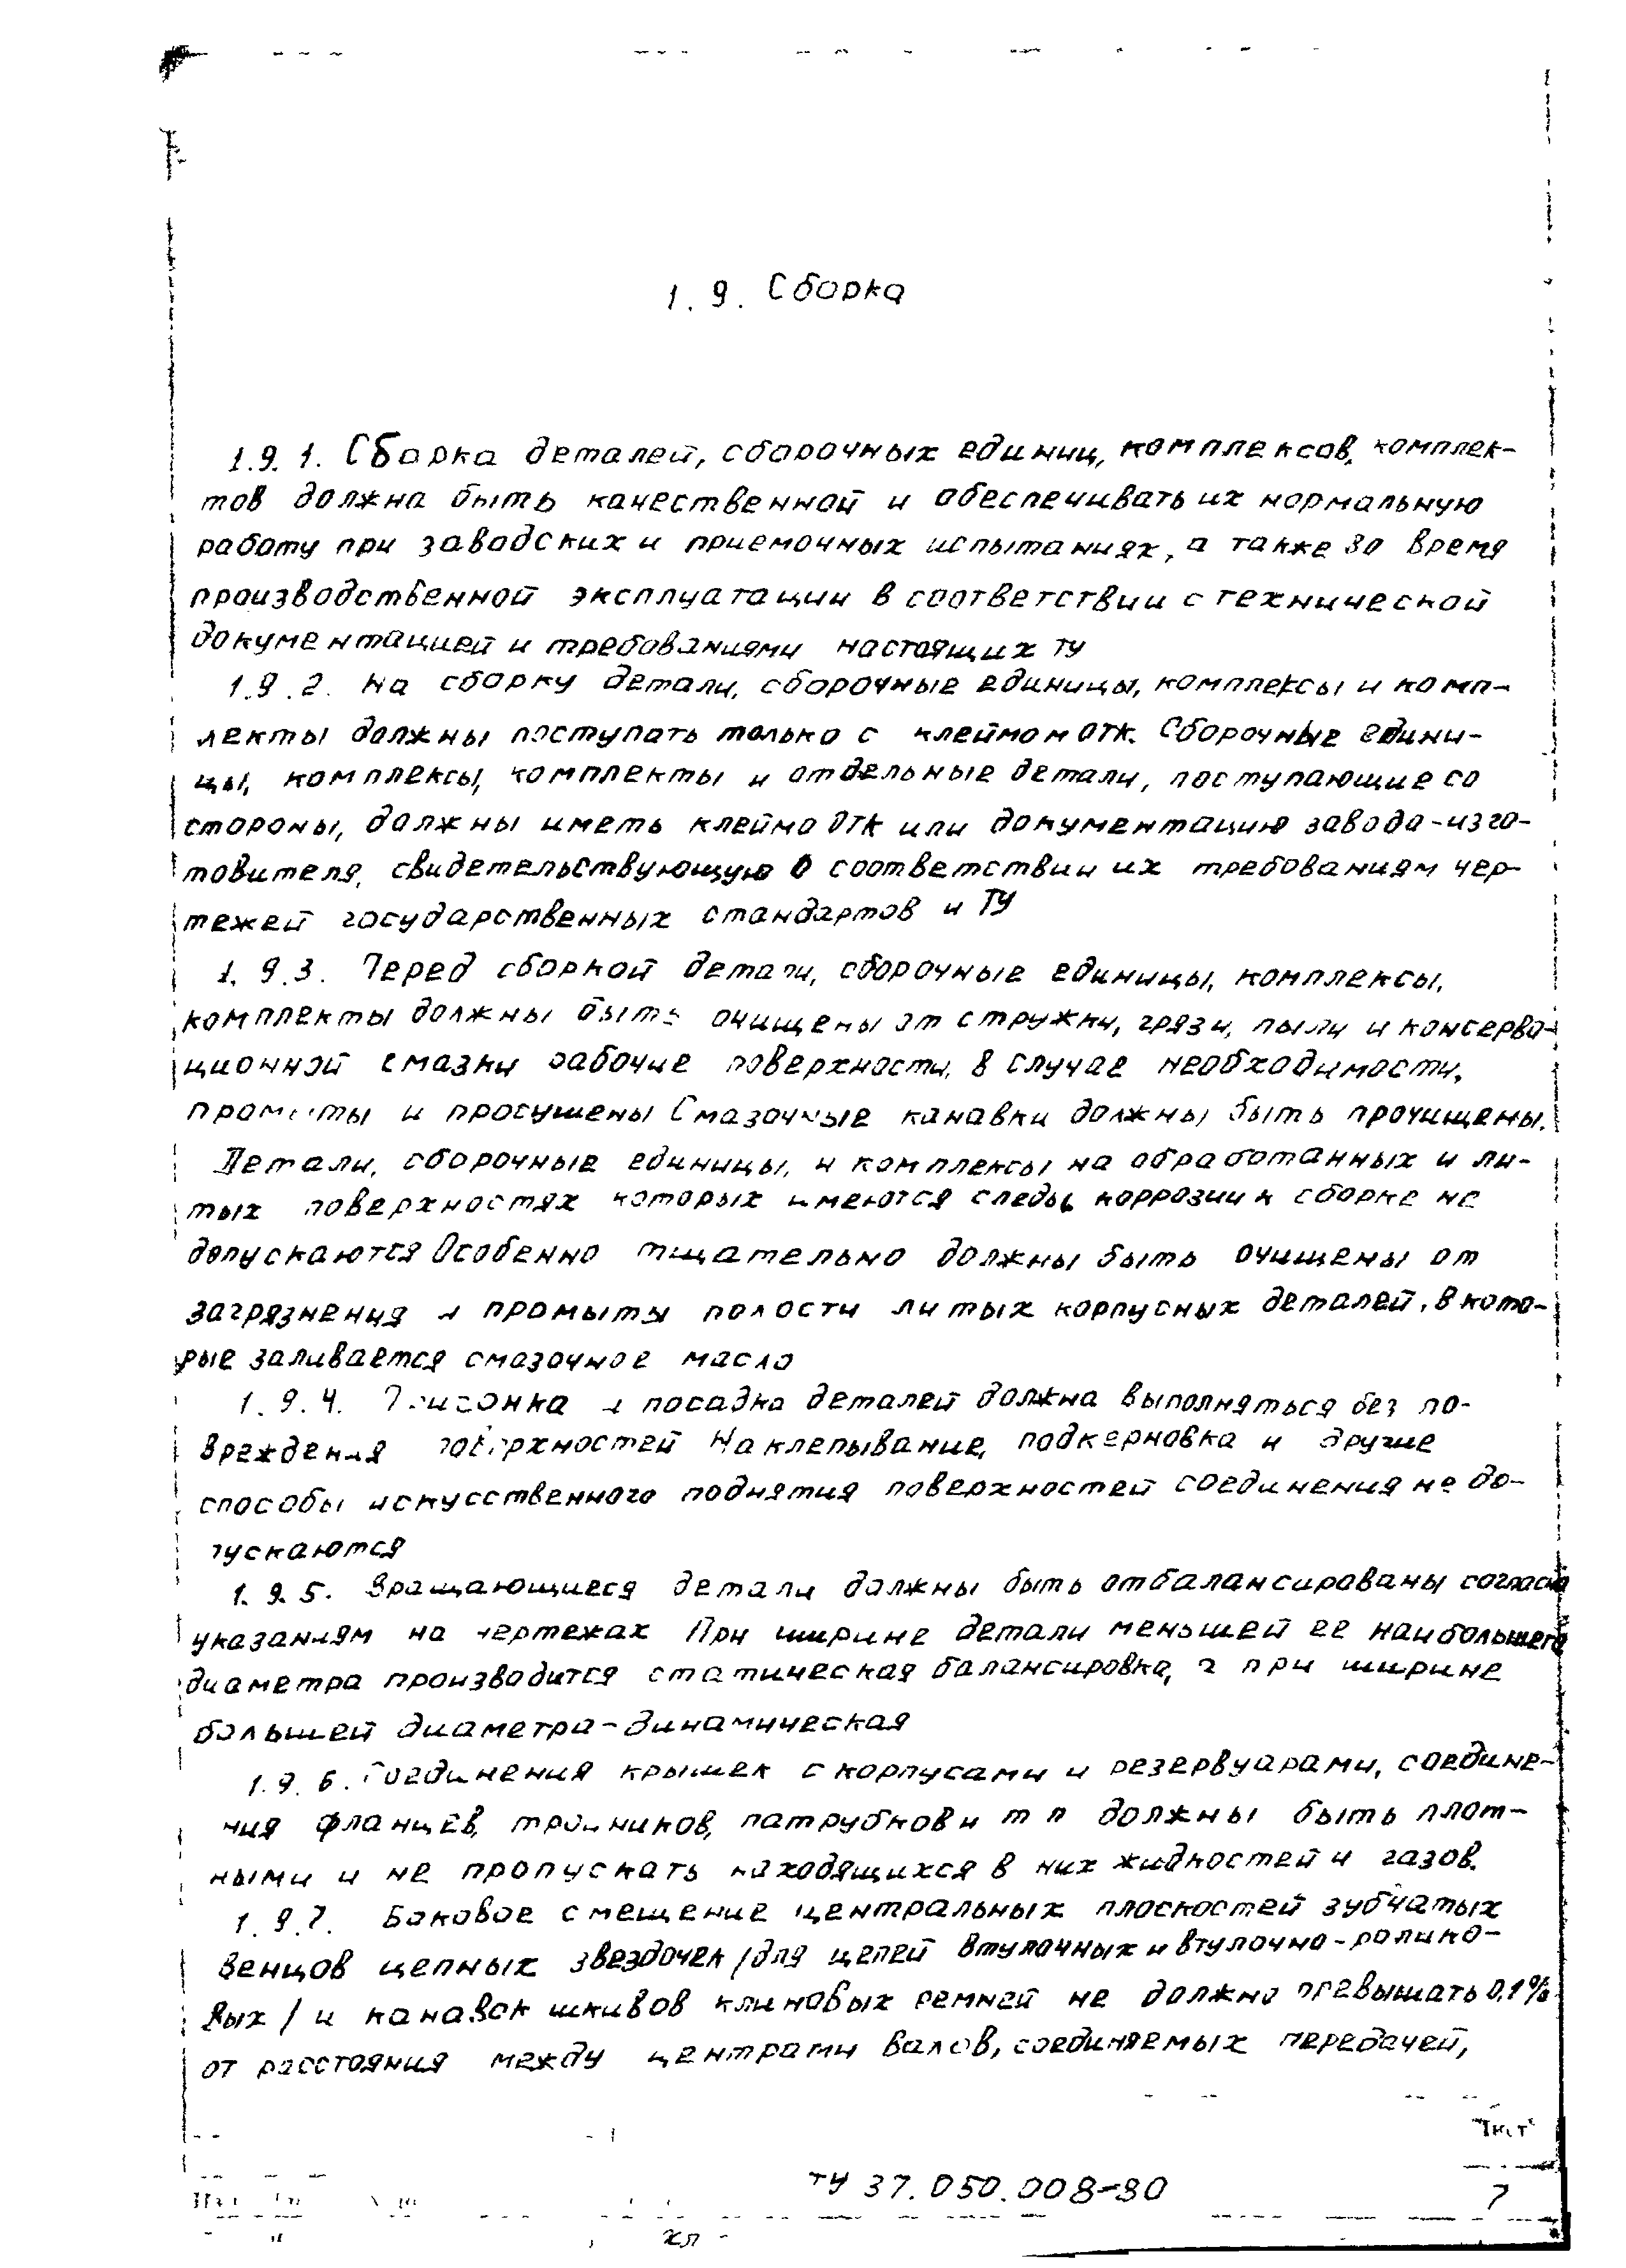 1.9. Сборка
1.9.1. Сборка деталей, сборочных единиц, комплексов, комплек-
тов должна быть качественной и обеспечивать их нормальную
работу при заводских и приемочных испытаниях, а также во время
производственной эксплуатации в соответствии с технической
документацией и требованиями настоящих ТУ
1.9.2. На сборку детали, сборочные единицы, комплексы и комп-
лекты должны поступать только с клеймом ОТК. Сборочные едини-
цы, комплексы, комплекты и отдельные детали, поступающие со
стороны, должны иметь клеймо ОТК или документацию завода-изго-
товителя, свидетельствующую о соответствии их требованиям чер-
тежей государственных стандартов и ТУ
1.9.3. Перед сборкой детали, сборочные единицы, комплексы,
комплекты должны быть очищены от стружки, грязи, пыли и консерва-
ционной смазки рабочие поверхности, в случае необходимости,
промыты и просушены Смазочные канавки должны быть прочищены.
Детали, сборочные единицы, и комплексы на обработанных и ли-
тых поверхностях которых имеются следы коррозии к сборке не
допускаются Особенно тщательно должны быть очищены от
загрязнения и промыты полости литых корпусных деталей, в кото-
рые заливается смазочное масло
1.9.4. Пригонка и посадка деталей должна выполняться без по-
вреждения поверхностей Наклепывание, подкерновка и другие
способы искусственного поднятия поверхностей соединения не до-
пускаются
1.9.5. Вращающиеся детали должны быть отбалансированы согласно
указаниям на чертежах При ширине детали меньшей ее наибольшего
диаметра производится статическая балансировка, а при ширине
большей диаметра-динамическая
1.9.6. Соединения крышек с корпусами и резервуарами, соедине-
ния фланцев, тройников, патрубков и т п должны быть плот-
ными и не пропускать находящихся в них жидкостей и газов.
1.9.7. Боковое смещение центральных плоскостей зубчатых
венцов цепных звездочек /для цепей втулочных и втулочно-ролико-
вых / и канавок шкивов клиновых ремней не должно превышать 0,1%
от расстояния между центрами валов, соединяемых передачей,
Лист
ТУ 37.050.008-80
7